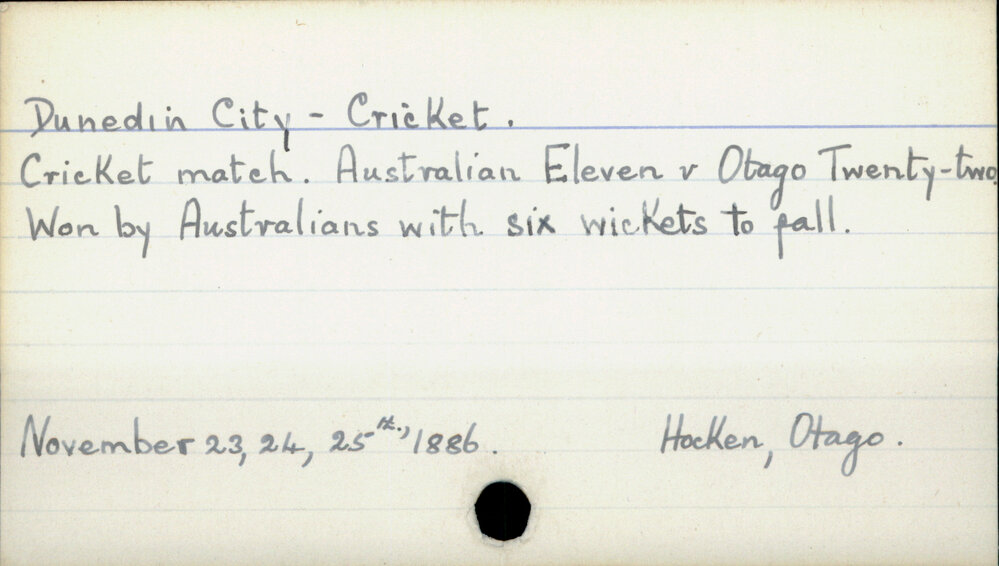 Dunedin City - Cricket.
Cricket match. Australian Eleven v Otago Twenty-two.
Won by Australians with six wickets to fall.
November 23, 24, 25th., 1886. Hocken, Otago.